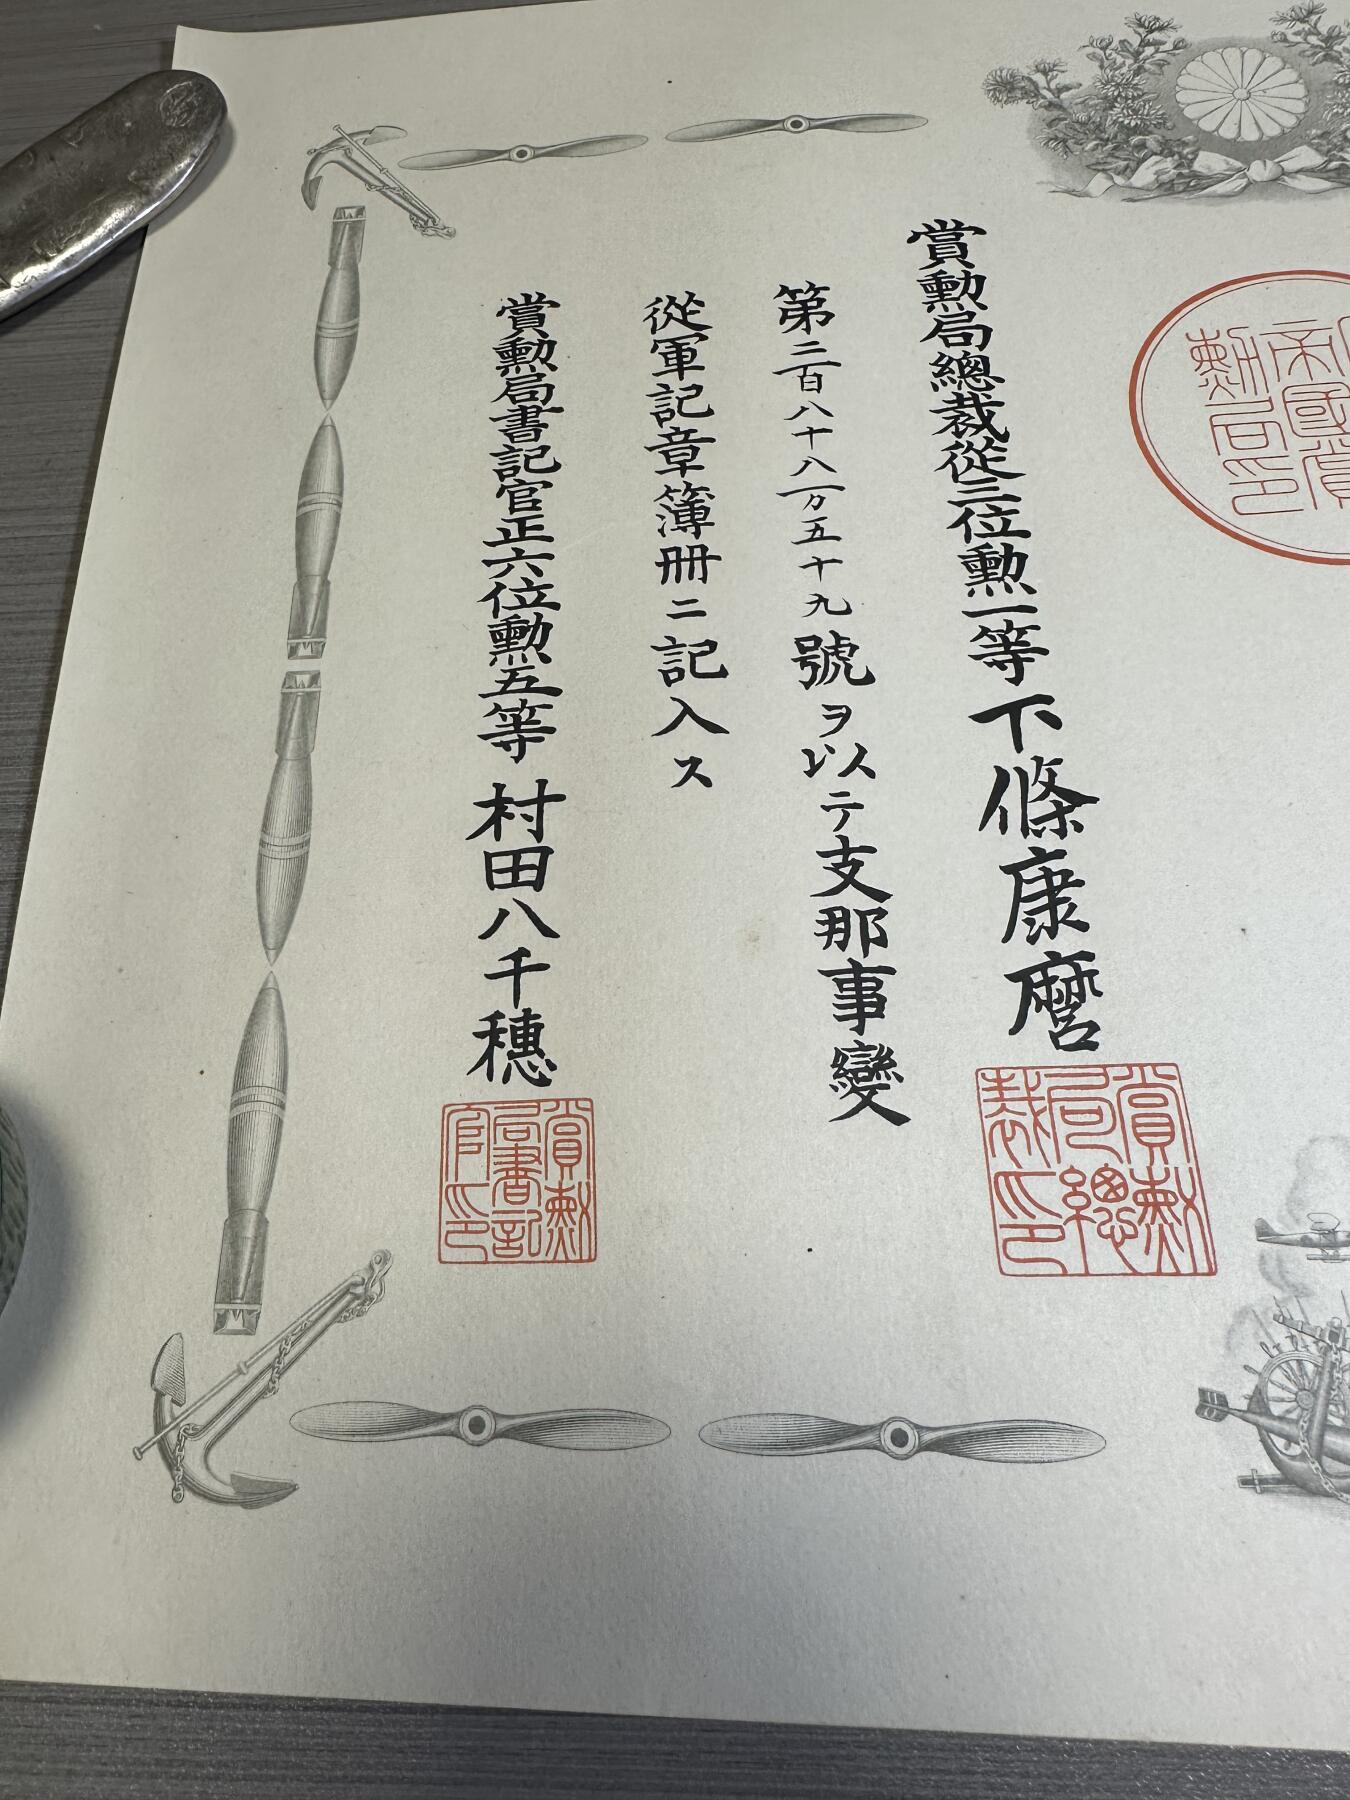 帝國賞
勳局印
賞勲局總裁從三位勲一等下條康麿
賞勳
局總
裁印
第二百八十八万五十九號ヲ以テ支那事變
從軍記章簿冊ニ記入ス
賞勲局書記官正六位勲五等村田八千穗
賞勳
局書記
官印